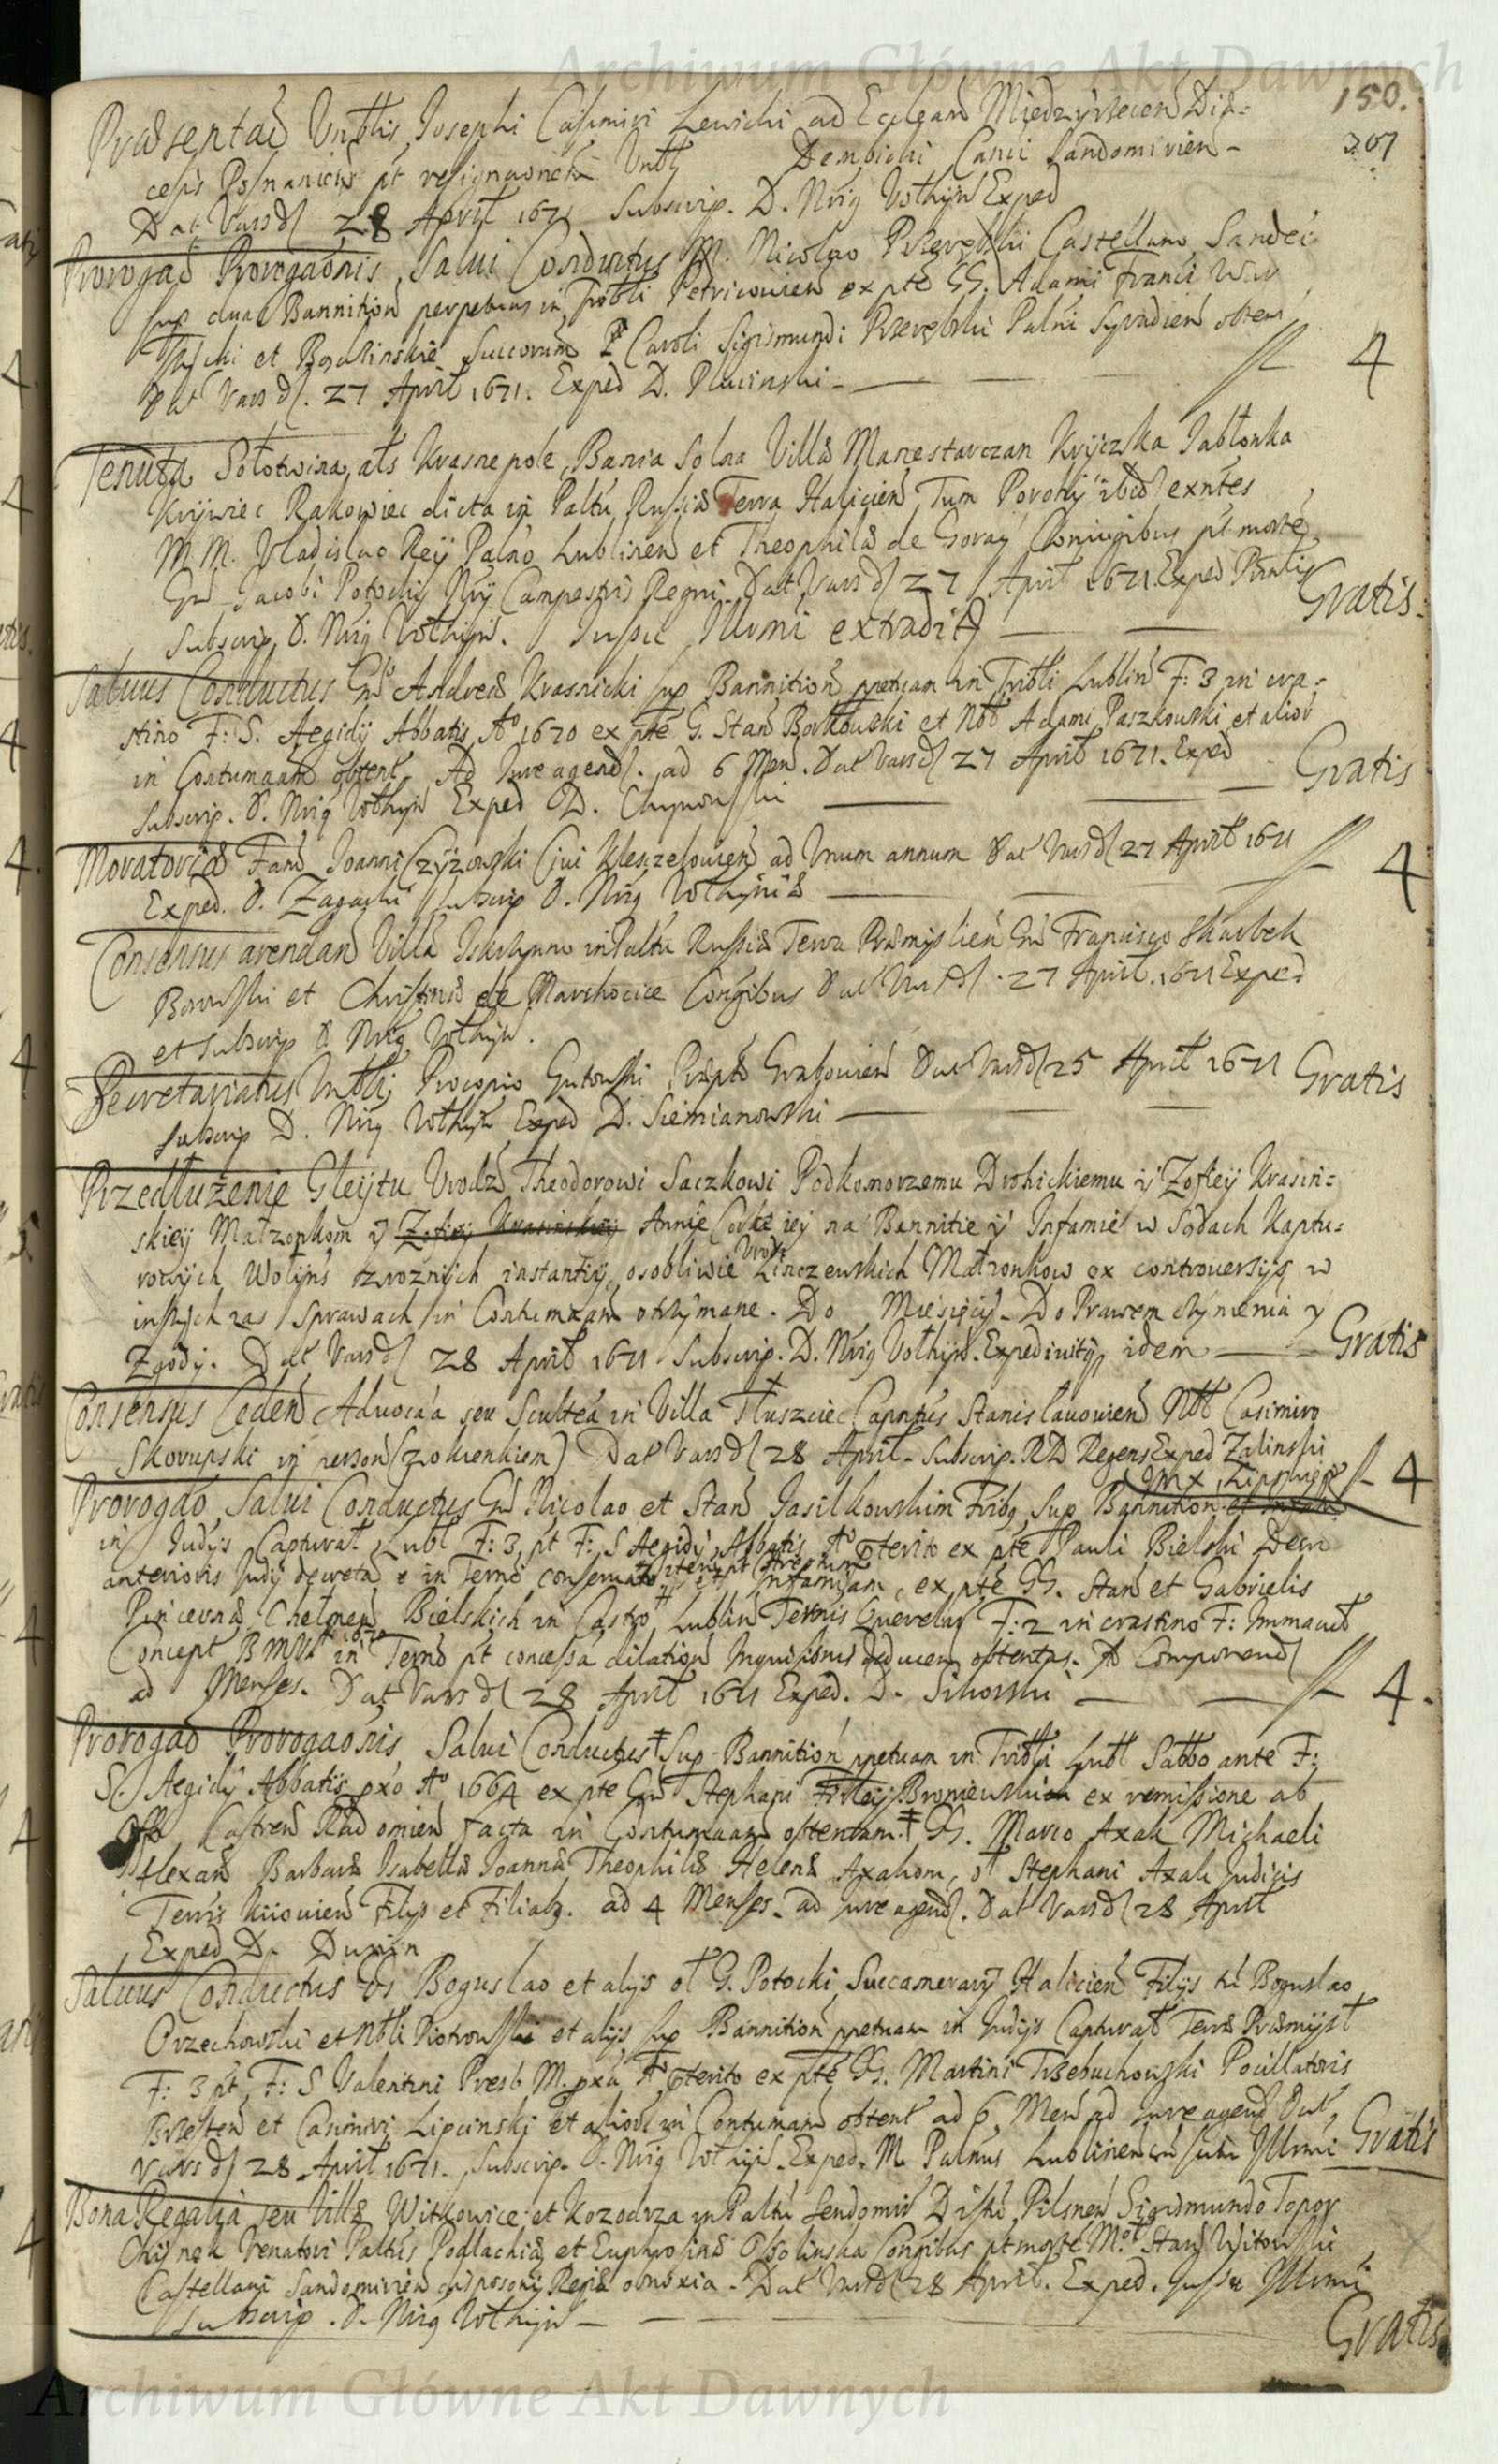 Archiwum Główne Akt Dawnych
150.
207
Præsentaõ Vnblis Josephi Casimiri Lewicki ad Ecclãm Międzyrzecen Diæ-
cesis Posnanien pt resignaonem Vnbl Dembicki Canci Sandomirien -
Dat Vars d 28 April 1671 Subscrip. D. Nrig Volhyn Exped
Prorogaõ Prorogaõnis Salui Conductus M. Nicolao Przerębski Castellano Sandec
sup duas Bannition perpetuas in Tribli Petricouien ex pte GG. Adami Franci
et succorum Caroli Sigismundi Przerębski Palni Syradien obten
Dat Vars d. 27 April 1671. Exped D. Placinski - 4
Tenuta Sołotwina, als Krasnepole, Bania Solna Villæ Manestarczan Kryczka Jabłonka
Krywiec Rakowiec dicta in Paltu Russiæ Terra Halicien, Tum Porohy ibid exntes
M M. Vladislao Rey Palno Lublinen et Theophilæ de Goray Coniugibus pt morte
Gnd Jacobi Potocki Nrij Campestris Regni. Dat Vars d 27 April 1671 Exped
Subscrip. D. Nrig Volhyn. Jussu Illmni extradit Gratis.
Saluus Conductus Gnd Andreæ Krasnicki sup Bannition ppetuam in Tribli Lublin F: 3 in cra-
stino F: S. Aegidij Abbatis Aº 1670 ex pte G. Stan Borkowski et Nob Adami Paszkowski et alior
in Contumaam obtent. Ad Jure agend. ad 6 Men. Dat Vars d 27 April 1671. Exped
Subscrip. D. Nrig Volhyn Exped D. Gratis
Moratoriæ Fam Joanni Czyżowski Ciui Kleszczelouien ad Vnum annum Dat Vars d 27 April 1671
Exped. D. Zagaski subscrip D. Nrig Volhyniæ 4
Consensus arendan Villã in Paltu Russiæ Terra Præmyslien Gnd Francisco Skarbek
Borowski et Christinæ de Marchocice Congibus Dat Vars d. 27 April. 1671 Exped
et subscrip D Nrig Volhyn.
Secretariatus Vnbli Procopio Gutowski Præpto Grabouien Dat Vars d 25 April 1671 Gratis
subscrip D. Nrig Volhyn Exped D. Siemianowski
Przedłużenie Gleytu Vrodz Theodorowi Saczkowi Podkomorzemu Drohickiemu y Zofiey Krasin-
skiey Małzonkom y Zofiey Krasinskiey Annie Corce iey na Bannitie y Infamie w Sądach Kaptu-
rowych Wołyns z roznych instantiy, osobliwie Vrodz Linczewskich Małzonkow ex controuersijs w
inszych zas sprawach in Contumaam otrzymane. Do Miesięcy. Do Prawem czynienia y
Zgody. Dat Vars d 28 April 1671 Subscrip. D. Nrig Volhyn. Expediuitq idem Gratis
Consensus Ceden Aduocaa seu Scultea in Villa Tłuszciec Capntus Stanislauouien Nbl Casimiro
Skorupski in person Dat Vars d 28 April. Subscrip. RD Regens Exped Zalinski 4
Prorogaõ Salui Conductus Gnd Nicolao et Stan Jasilkowskim Frib9 Sup Bannition et Infam
in Judijs Capturat Lubl F: 3 pt F: S Aegidij Abbatis Aº pterito ex pte Pauli Bielski Decr
anterioris Judij decreta in Termo conseruato et Infamiam, ex pte GG. Stan et Gabrielis
Pincernæ Chełmen Bielskich in Castro Lublin Termis Querelar F: 2 in crastino F: Immacul
Concept BMV in Termo pt concessã dilation Inquisitionis deducen obtentas. Ad Componend
ad Menses. Dat Vars d 28 April 1671 Exped. D. Sikorski 4.
Prorogaõ Prorogaõnis Salui Conductus ‡ Sup Bannition ppetuam in Tribli Lubl Sabbo ante F:
S. Aegidij Abbatis pxo Aº 1664 ex pte Gnd Stephani Broniewski ex remissione ab
Offo Castren Radomien facta in Contumaam obtentam. ‡ GG. Marco Axak Michaeli
Alexan Barbaræ Isabellæ Joannæ Theophilæ Helenæ Axakom, ol Stephani Axak Judicis
Terris Kiiouien Filijs et Filiab9. ad 4 Menses. ad jure agend. Dat Vars d 28 April
Exped D. Dunin
Saluus Conductus Gs Boguslao et alijs ol G. Potocki Succamerarij Halicien Filijs tu Boguslao
Orzechowski et Nbli Piotrowski et alijs sup Bannition ppetuam in Judijs Capturat Terræ Præmysl
F: 3 pt F: S Valentini Presb M. pxa Aº pterito ex pte GG. Martini Trzebuchowski Pocillatoris
Brzesten et Casimiri Lipcinski et alior in Contumam obtent ad 6 Men ad jure agend Dat
Vars d 28 April 1671. Subscrip. D. Nrig Volhyn. Exped. M Palnus Lublinen Illmni Gratis
Bona Regalia seu Villæ Witkowice et Kozodrza in Paltu Sendomir Distu Pilsnen Sigismundo Topor
Chynek Venatori Paltus Podlachiæ et Euphrosinæ Ossolinska Congibus pt morte M. ol Stan Witowski
Castellani Sandomirien disposoni Regiæ obnoxia. Dat Vars d 28 April. Exped. Jussu Illmni
Subscrip. D. Nrig Volhyn Gratis
Archiwum Główne Akt Dawnych